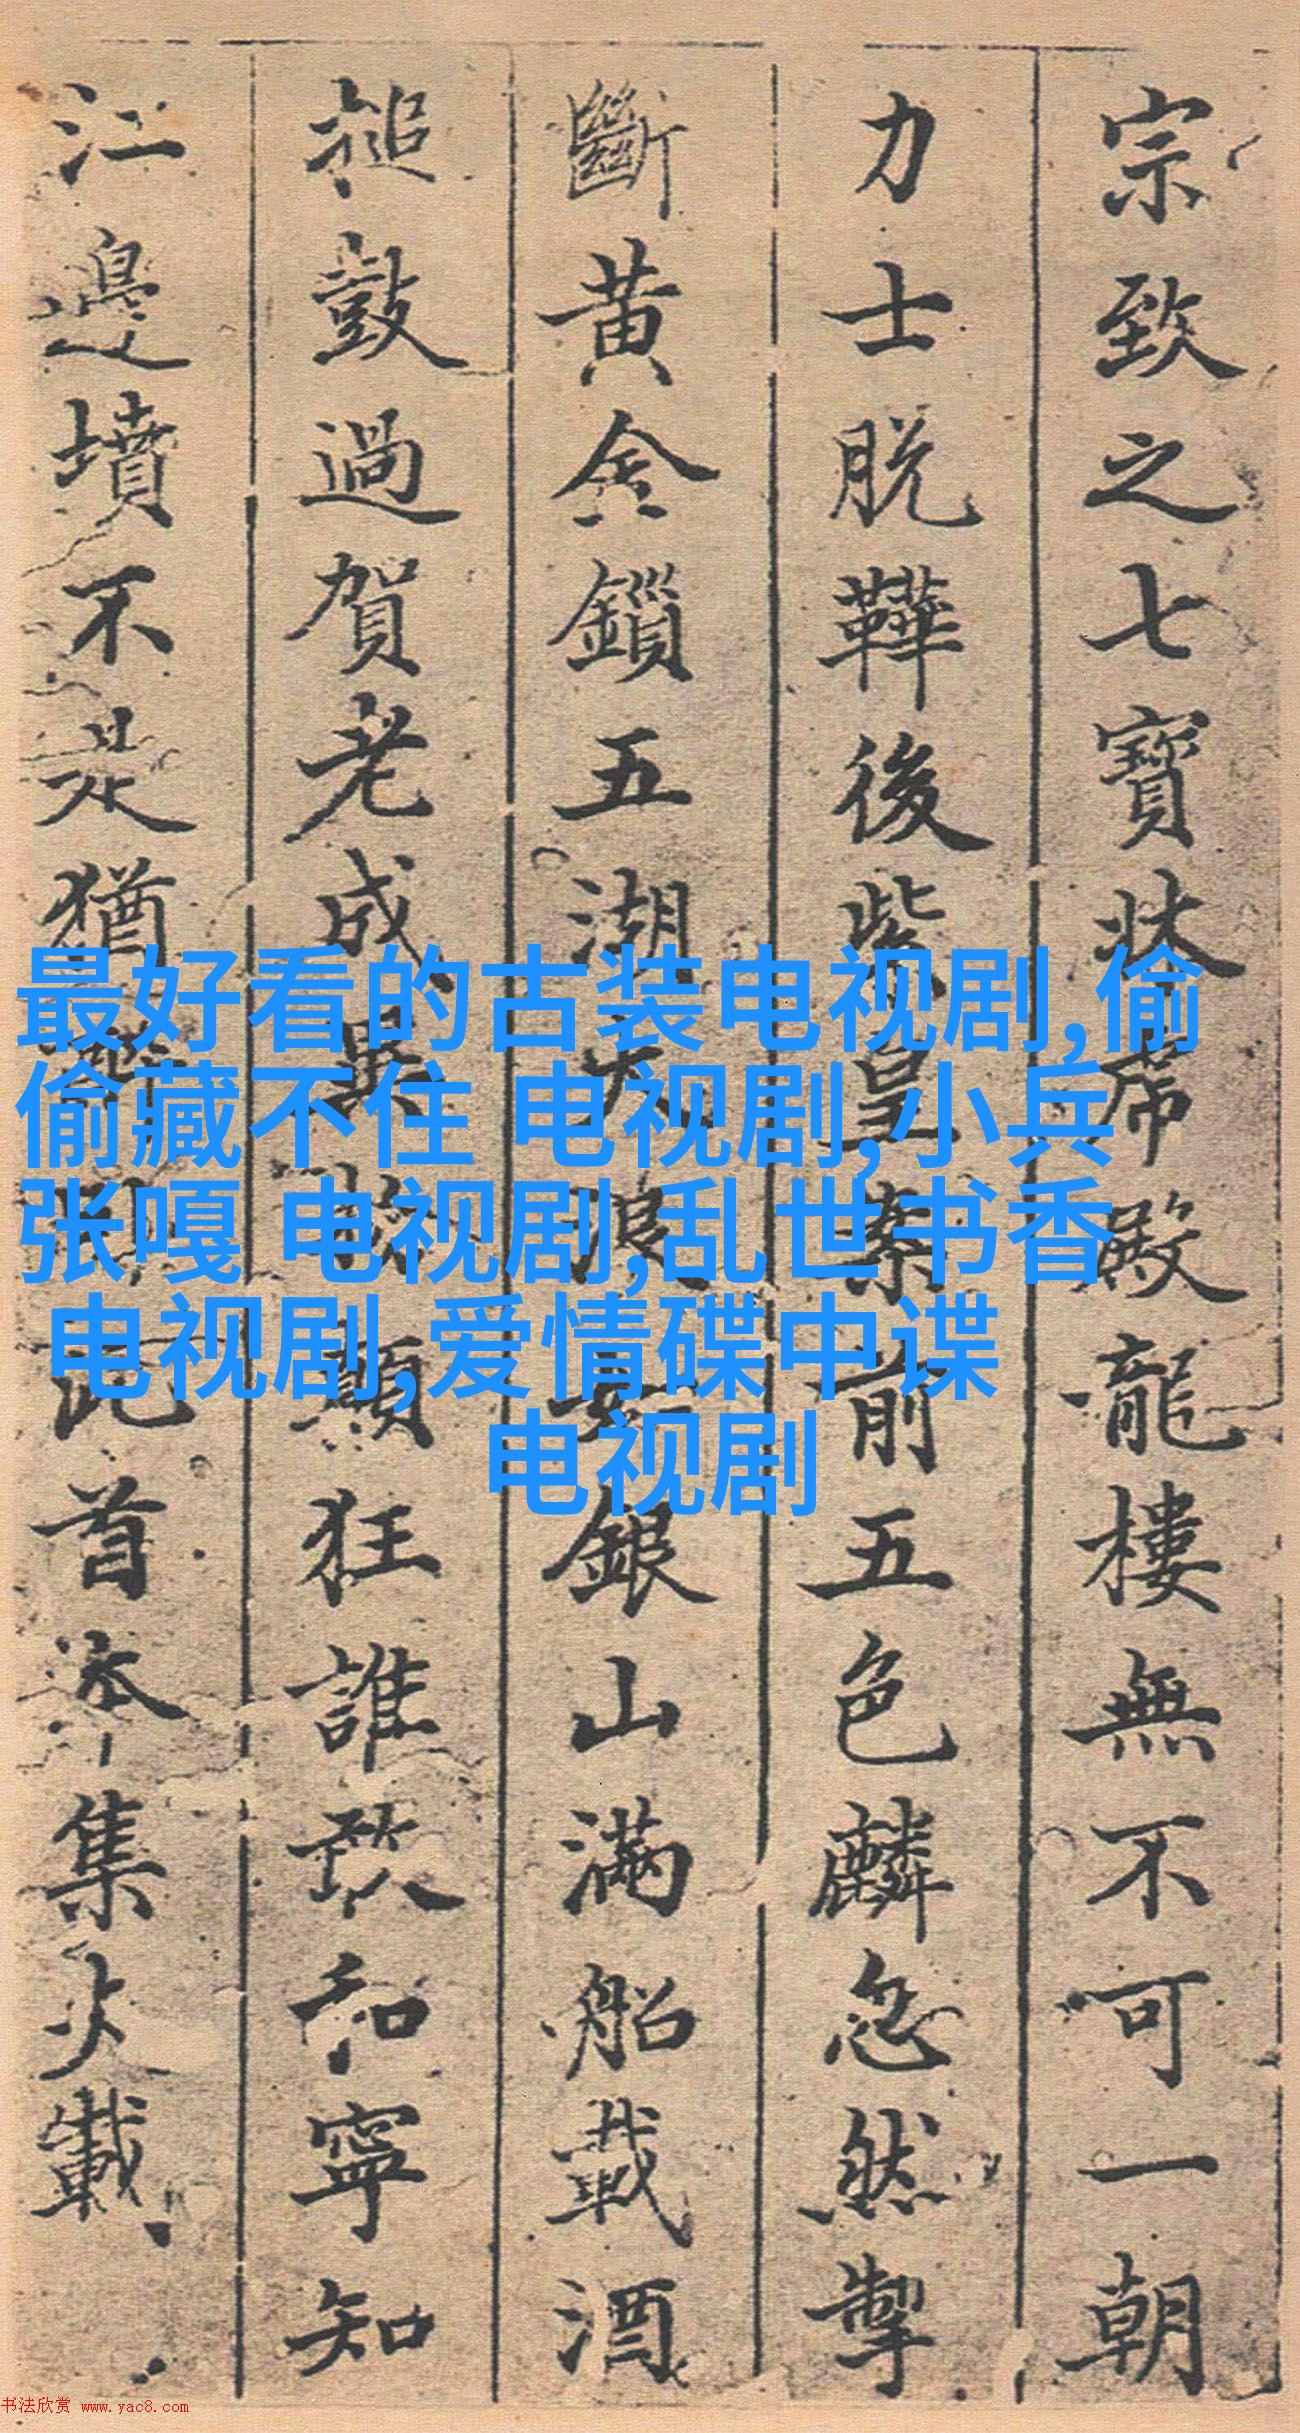 宗致之七寶牀虎殿龍樓無不可一朝
力士脱鞾後紫皇案前五色麟忽然掣
斷黄金鎖五湖大浪如銀山滿船載酒
搥鼓過賀老成異物顛狂誰敢和寧知
江邊墳不是猶醉臥此首本集失載
最好看的古装电视剧,偷
偷藏不住 电视剧,小兵
张嘎 电视剧,乱世书香
电视剧,爱情碟中谍
电视剧
书法欣赏 www.yac8.com